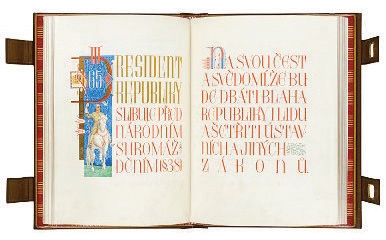 65
PRESIDENT
REPUBLIKY
SLIBUJE PŘED
NÁRODNÍM
SHROMÁŽ
DĚNÍM (§38)
NA SVOU ČEST
A SVĚDOMÍ ŽE BU
DE DBÁTI BLAHA
REPUBLIKY I LIDU
A ŠETŘITI ÚSTAV
NÍCH A JINÝCH
ZÁKONŮ